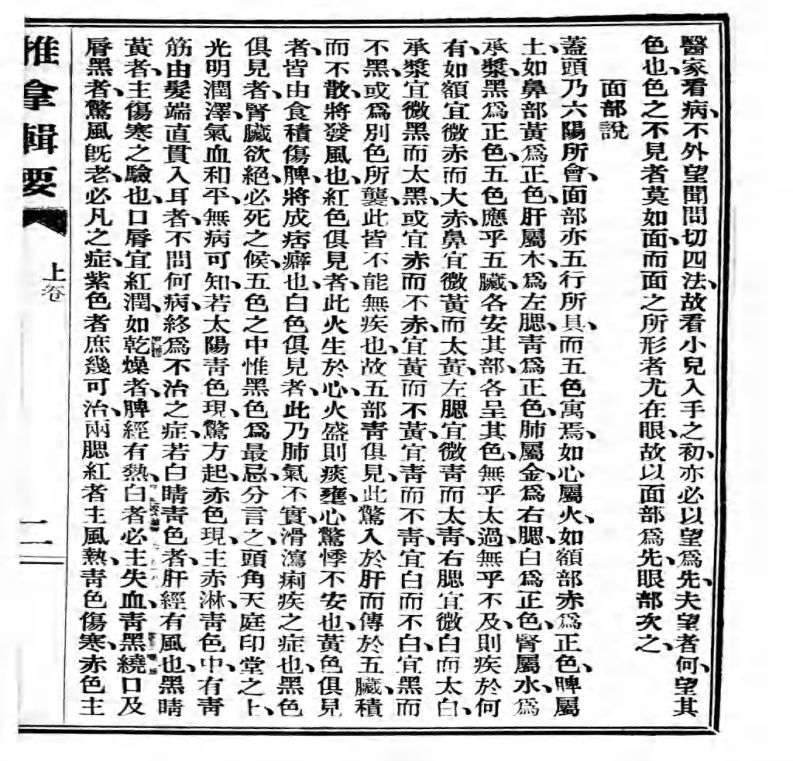 醫家看病、不外望聞問切四法、故看小兒入手之初、亦必以望爲先、夫望者何、望其
色也、色之不見者莫如面、而面之所形者尤在眼、故以面部爲先、眼部次之、
面部說
蓋頭乃六陽所會、面部亦五行所具、而五色寓焉、如心屬火、如額部赤爲正色、脾屬
土、如鼻部黃爲正色、肝屬木、爲左腮、青爲正色、肺屬金、爲右腮、白爲正色、腎屬水、爲
承漿、黑爲正色、五色應乎五臟、各安其部、各呈其色、無乎太過、無乎不及、則疾於何
有、如額宜微赤而大赤、鼻宜微黃而太黃、左腮宜微青而太青、右腮宜微白而太白、
承漿宜微黑而太黑、或宜赤而不赤、宜黃而不黃、宜青而不青、宜白而不白、宜黑而
不黑、或爲別色所襲、此皆不能無疾也、故五部青俱見、此驚入於肝而傳於五臟、積
而不散、將發風也、紅色俱見者、此火生於心、火盛則痰壅、心驚悸不安也、黃色俱見
者、皆由食積傷脾、將成痞癖也、白色俱見者、此乃肺氣不實、滑瀉痢疾之症也、黑色
俱見者、腎臟欲絕、必死之候、五色之中、惟黑色爲最忌、分言之、頭角天庭印堂之上、
光明潤澤、氣血和平、無病可知、若太陽青色現、驚方起、赤色現、主赤淋、青色中有青
筋、由髮端直貫入耳者、不問何病、終爲不治之症、若白睛青色者、肝經有風也、黑睛
黃者、主傷寒之驗也、口唇宜紅潤、如乾燥者、脾經有熱、白者必主失血、青黑繞口及
唇黑者、驚風旣老、必凡之症、紫色者庶幾可治、兩腮紅者主風熱、青色傷寒、赤色主
推拿輯要
上卷
二